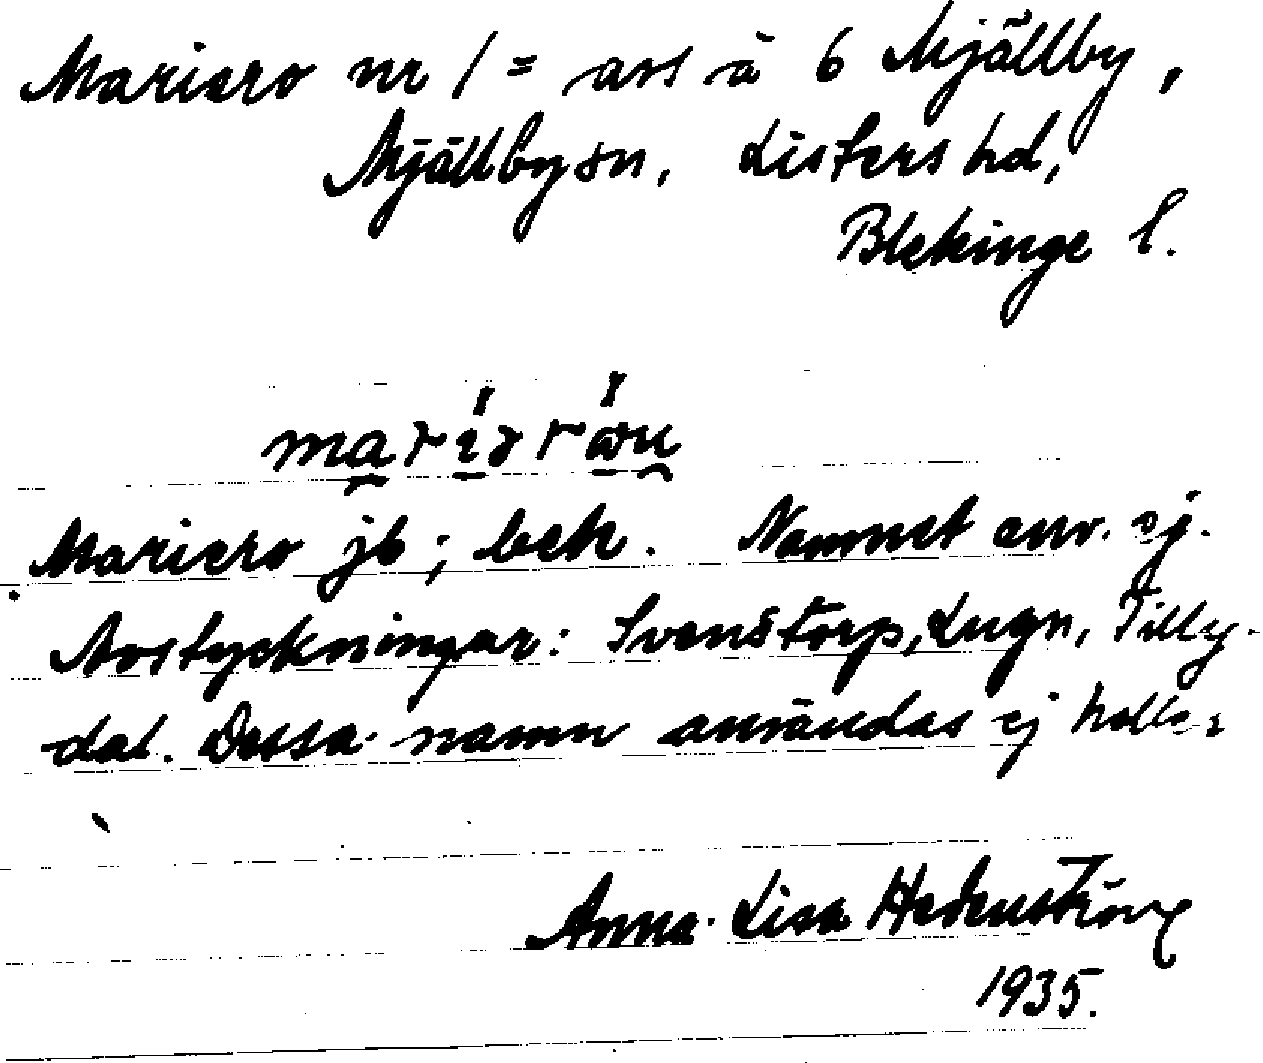 Mariero nr 1 = avs å 6 Mjällby,
Mjällby sn, Listers hd,
Blekinge l.
Mariero jb; bek. Namnet anv. ej.
Avstyckningar: Svenstorp, Lugn, Tilly-
dal. Dessa namn användas ej heller
Anna-Lisa Hedenström
1935.